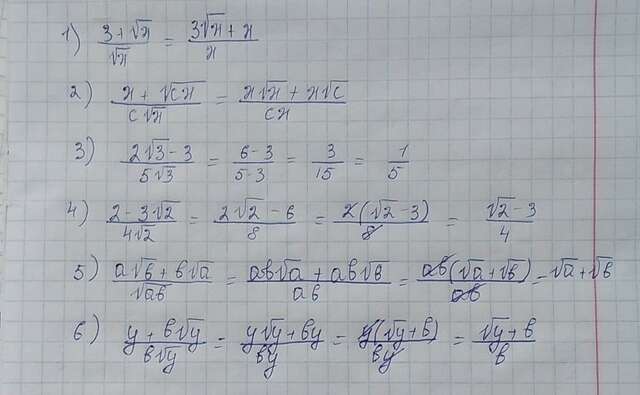 1) (3 + √x)/√x = (3√x + x)/x
2) (x + √cx)/(c√x) = (x√x + x√c)/(cx)
3) (2√3 - 3)/(5√3) = (6 - 3)/(5·3) = 3/15 = 1/5
4) (2 - 3√2)/(4√2) = (2√2 - 6)/8 = 2(√2 - 3)/8 = (√2 - 3)/4
5) (a√b + b√a)/√ab = (ab√a + ab√b)/(ab) = ab(√a + √b)/(ab) = √a + √b
6) (y + b√y)/(b√y) = (y√y + by)/(by) = y(√y + b)/(by) = (√y + b)/b